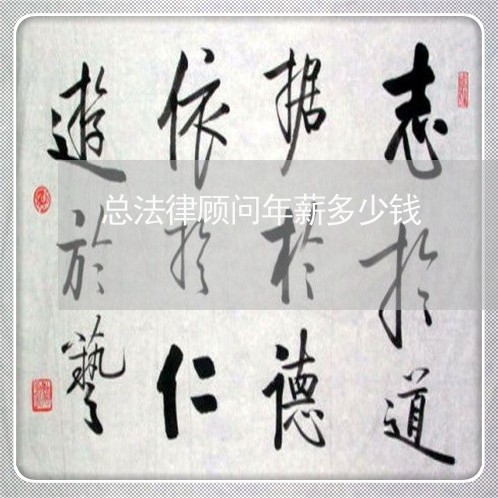 志於道
据於德
依於仁
遊於藝
总法律顾问年薪多少钱